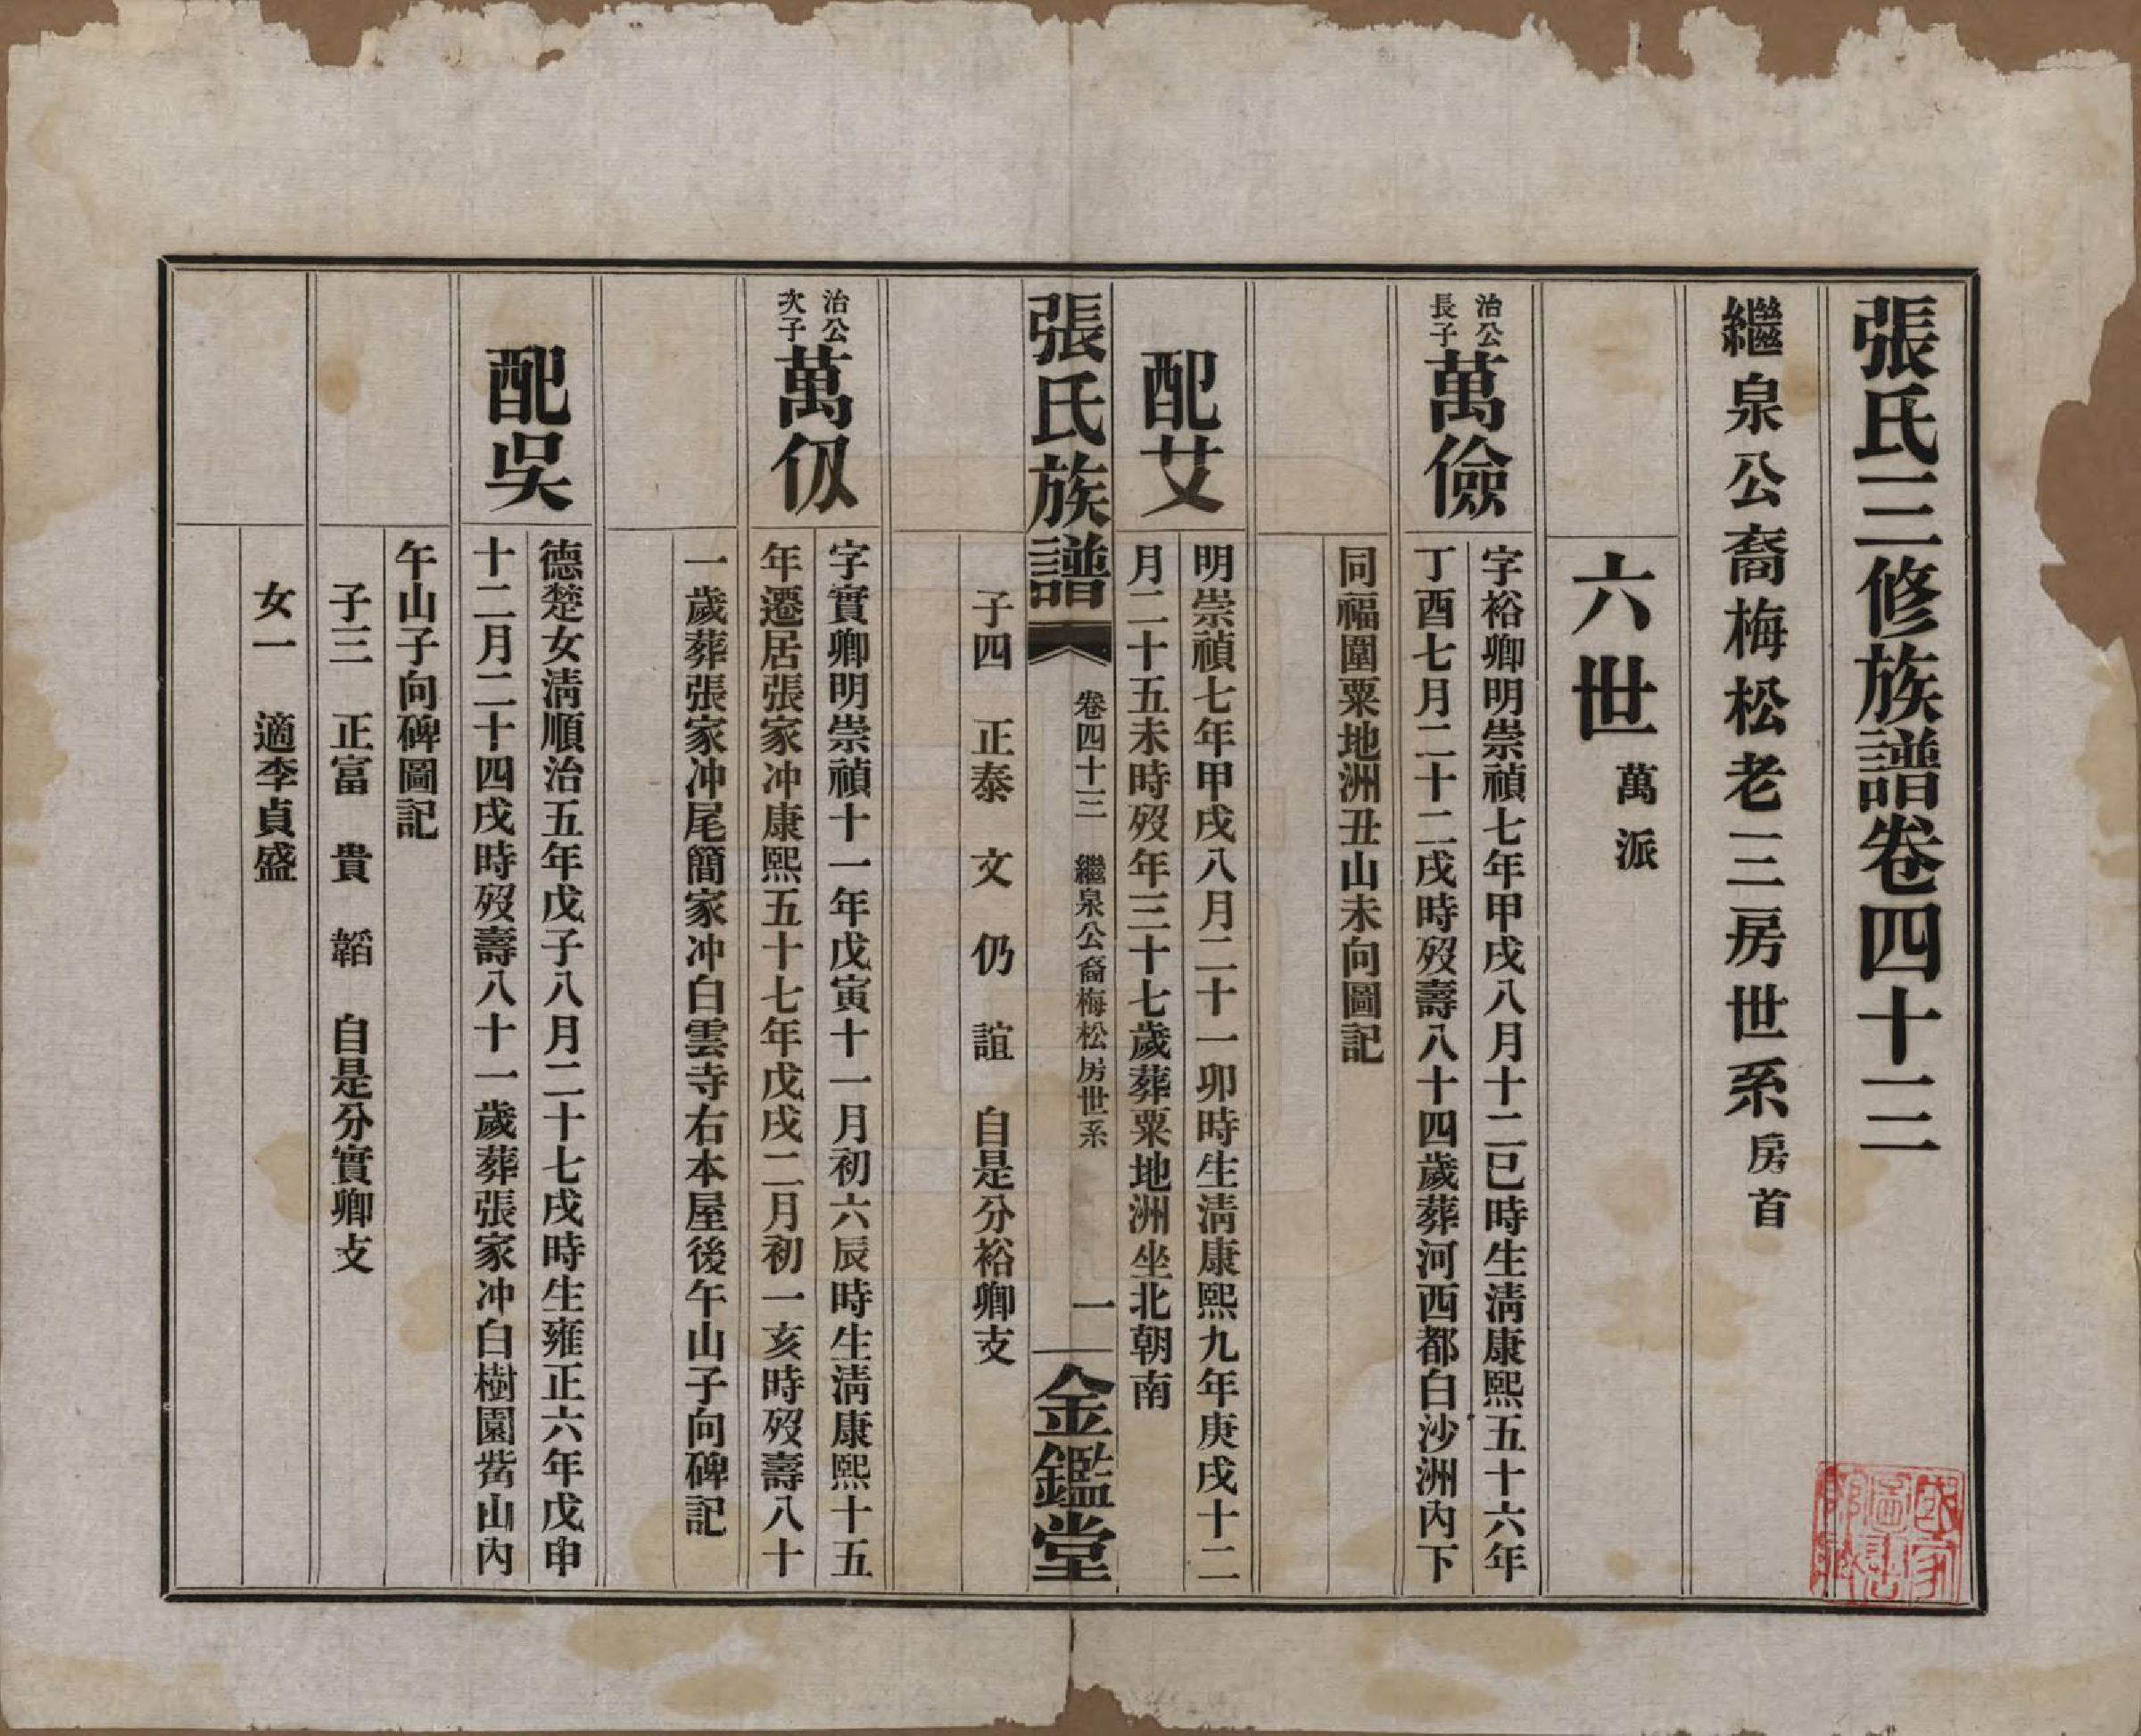 張氏三修族譜卷四十三
繼泉公裔梅松老三房世系房首
六世萬派
治公
長子
萬儉
字裕卿明崇禎七年甲戌八月十二巳時生清康熙五十六年
丁酉七月二十二戌時歿壽八十四歲葬河西都白沙洲內下
同福圍粟地洲丑山未向圖記
配艾
明崇禎七年甲戌八月二十一卯時生清康熙九年庚戌十二
月二十五未時歿年三十七歲葬粟地洲坐北朝南
張氏族譜
卷四十三 繼泉公裔梅松房世系
一
金鑑堂
子四 正泰 文 仍 誼 自是分裕卿支
治公
次子
萬仭
字實卿明崇禎十一年戊寅十一月初六辰時生清康熙十五
年遷居張家冲康熙五十七年戊戌二月初一亥時歿壽八十
一歲葬張家冲尾簡家冲白雲寺右本屋後午山子向碑記
配吳
德楚女清順治五年戊子八月二十七戌時生雍正六年戊申
十二月二十四戌時歿壽八十一歲葬張家冲白樹園嵜山內
午山子向碑圖記
子三 正富 貴 韜 自是分實卿支
女一 適李貞盛